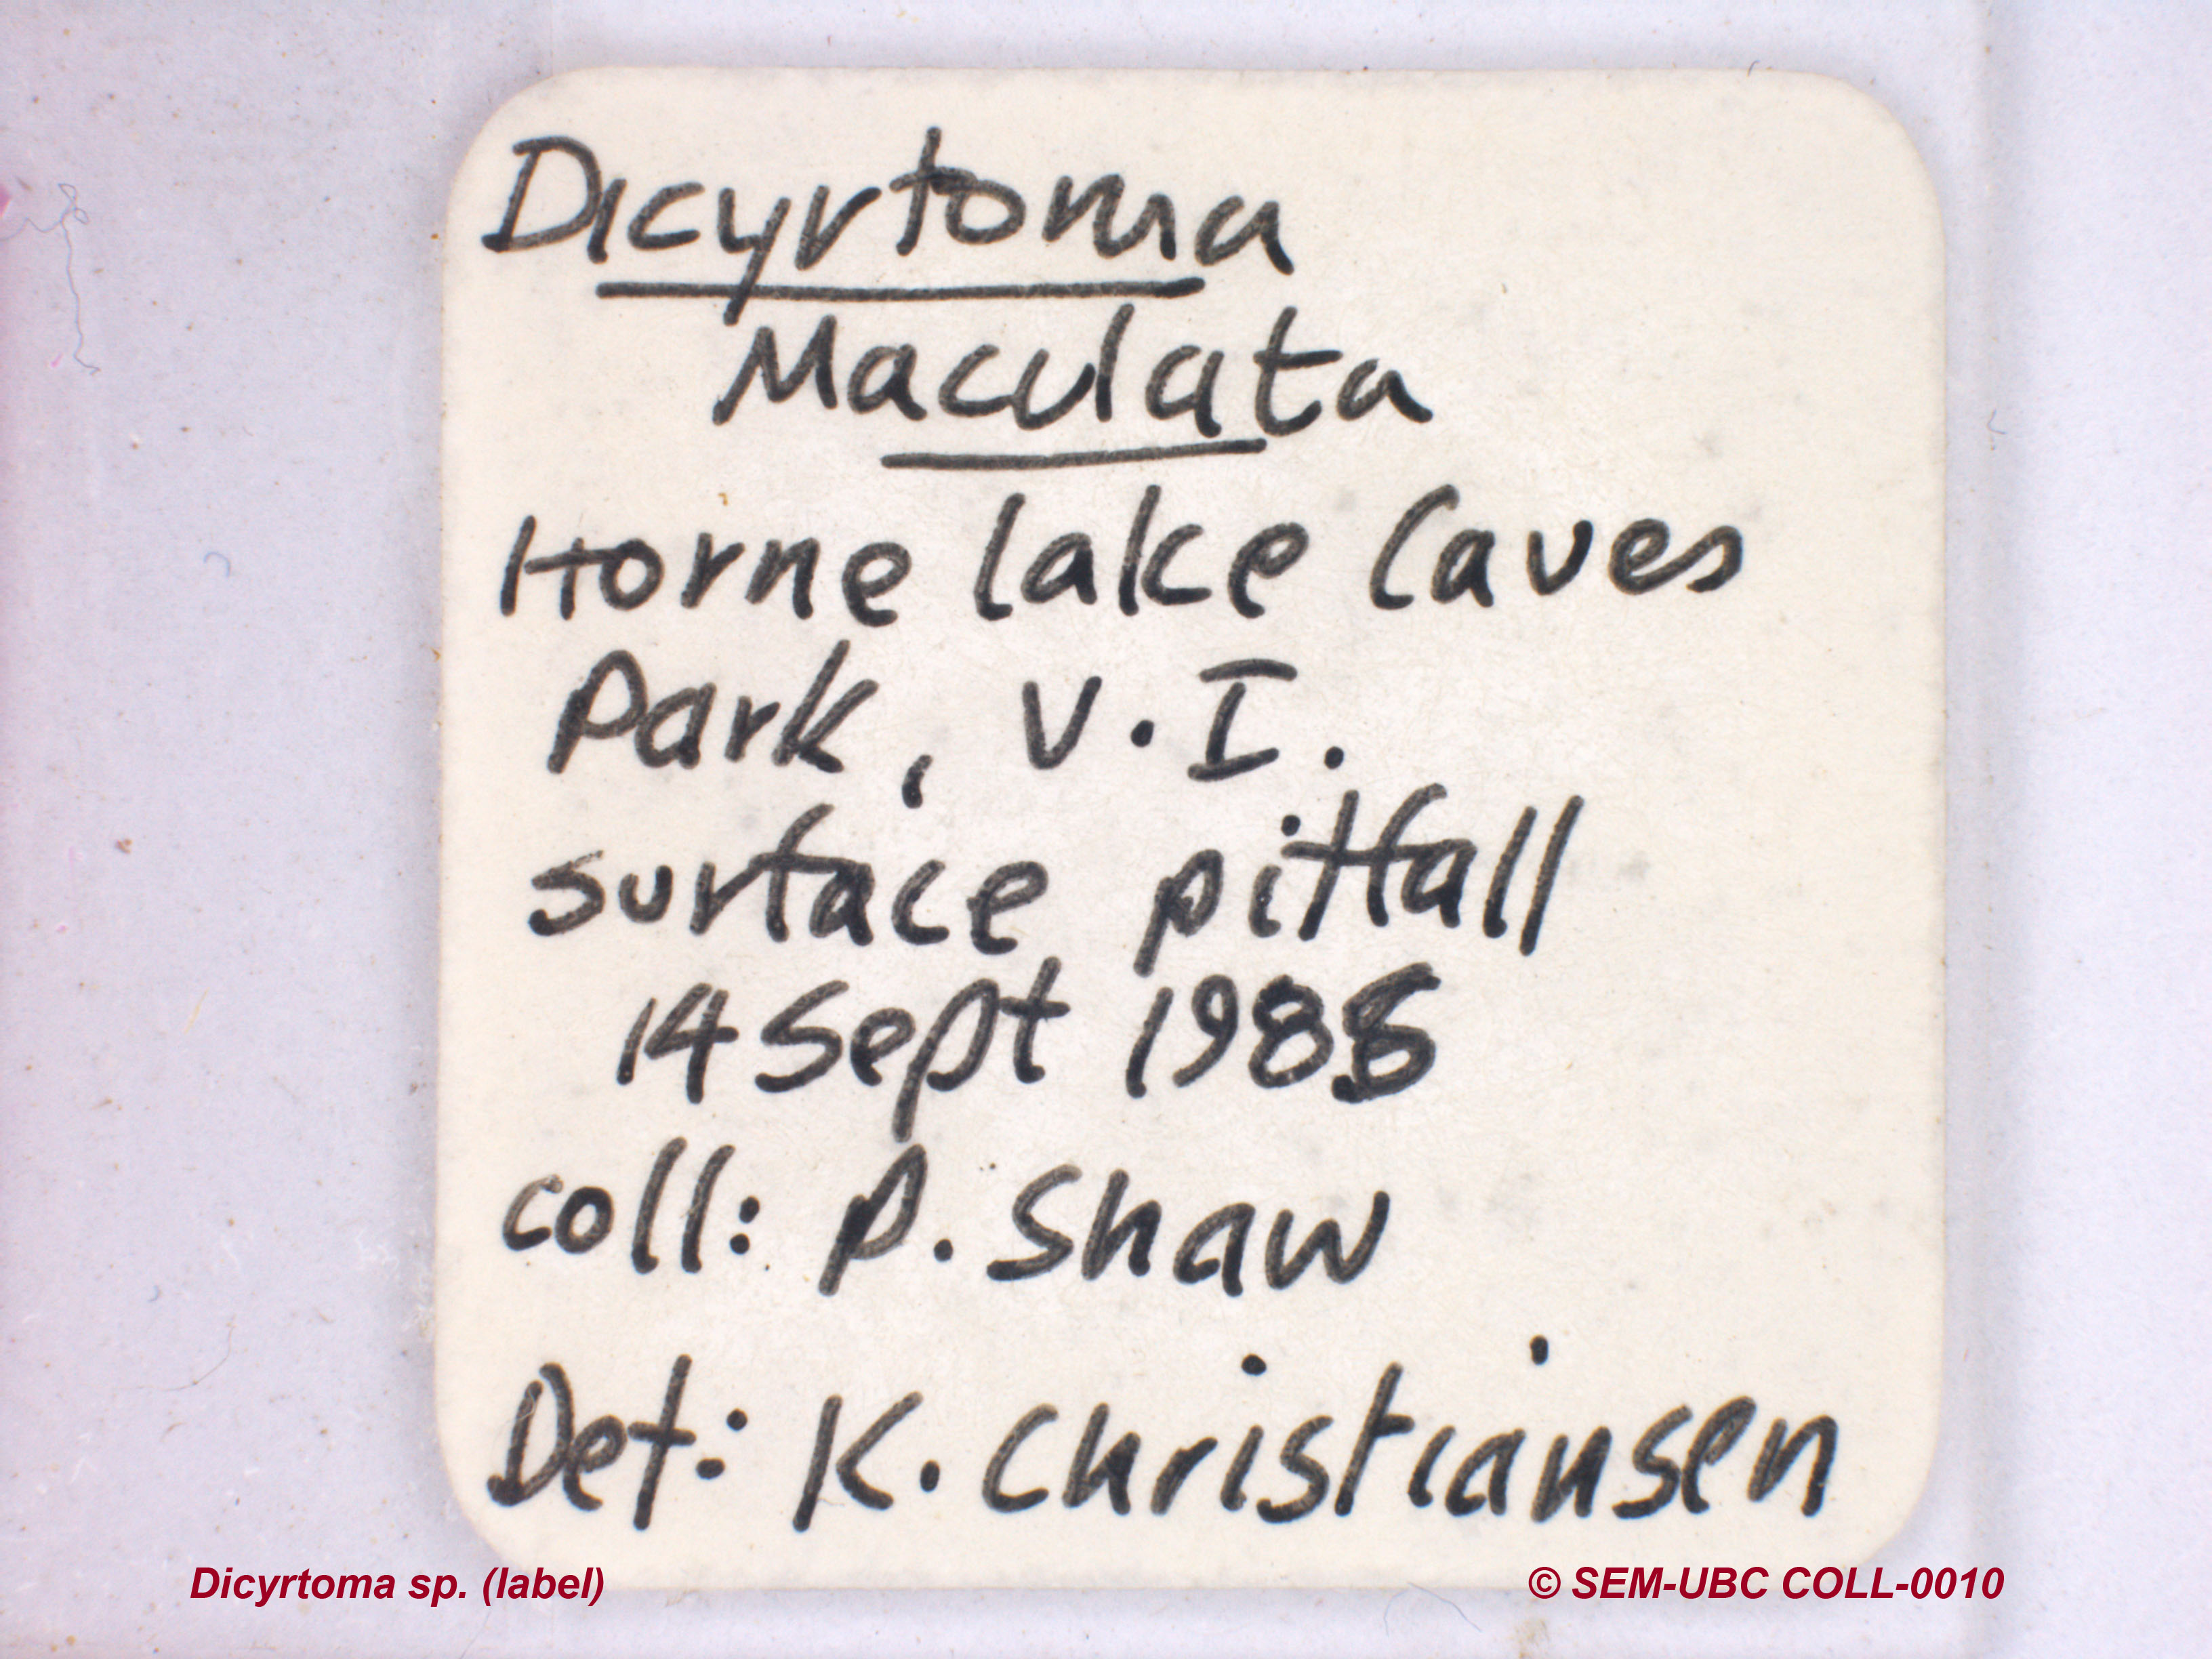 Dicyrtoma
Maculata
Horne lake Caves
Park, V.I.
surface pitfall
14 Sept
coll: P. Shaw
Det: K. Christiansen
Dicyrtoma sp. (label)
© SEM-UBC COLL-0010